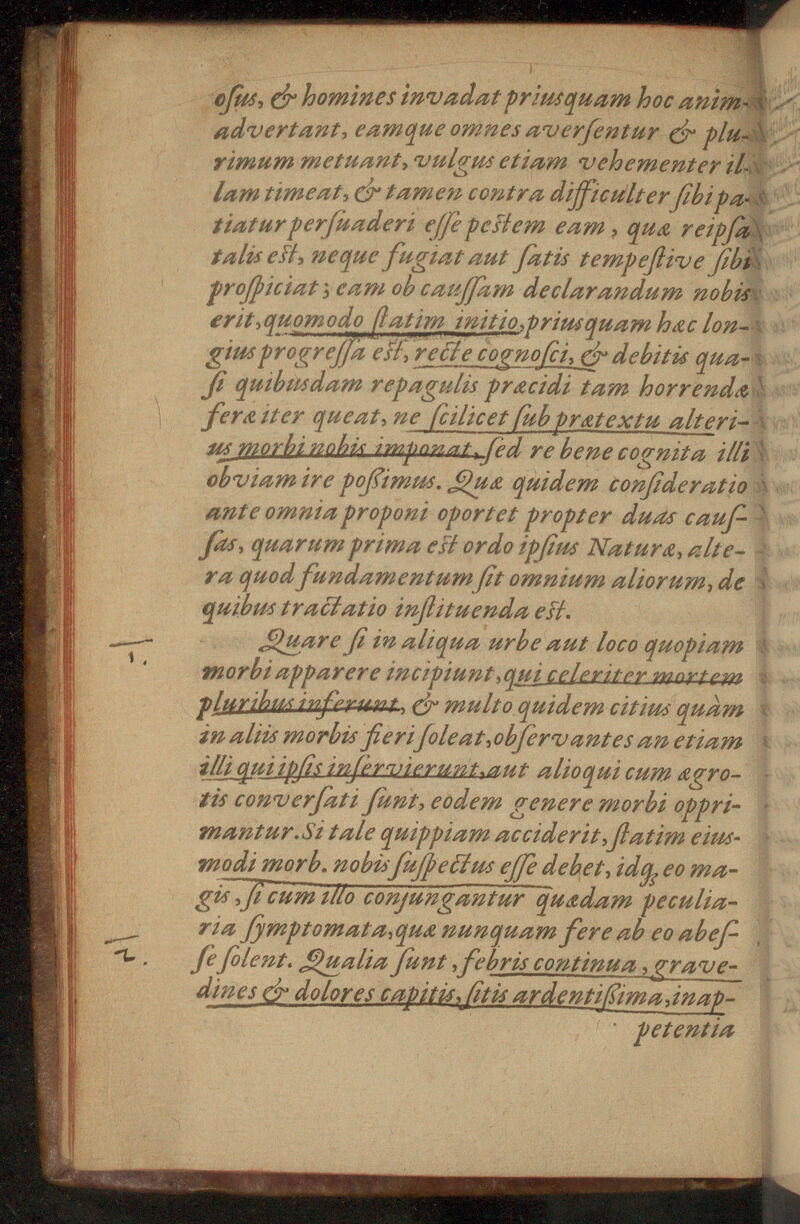 ofus, & homines invadat priusquam hoc anima-
advertant, eamque omnes aversentur & plu-
rimum metuant, vulgus etiam vehementer il-
lam timeat, & tamen contra difficulter sibi pa-
tiatur persuaderi esse pestem eam, quæ reipsa
talis est, neque fugiat aut satis tempestive sibi
prospiciat; eam ob caussam declarandum nobis
erit, quomodo statim initio, priusquam hæc lon-
gius progressa est, recte cognosci, & debitis qua-
si quibusdam repagulis præcidi tam horrendæ
feræ iter queat, ne scilicet sub prætextu alteri-
us morbi nobis imponat, sed re bene cognita illi
obviam ire possimus. Quæ quidem consideratio
ante omnia proponi oportet propter duas caus-
sas, quarum prima est ordo ipsius Naturæ, alte-
ra quod fundamentum sit omnium aliorum, de
quibus tractatio instituenda est.
Quare si in aliqua urbe aut loco quopiam
1. morbi apparere incipiunt, qui celeriter mortem
pluribus inferunt, & multo quidem citius quàm
in aliis morbis fieri soleat, observantes an etiam
illi qui ipsis inservierunt, aut alioqui cum ægro-
tis conversati sunt, eodem genere morbi oppri-
mantur. Si tale quippiam acciderit, statim eius-
modi morb. nobis suspectus esse debet, idq, eo ma-
gis, si cum illo conjungantur quædam peculia-
ria symptomata, quæ nunquam fere ab eo abes-
2. se solent. Qualia sunt, febris continua, grave-
dines & dolores capitis, sitis ardentissima, inap-
petentia